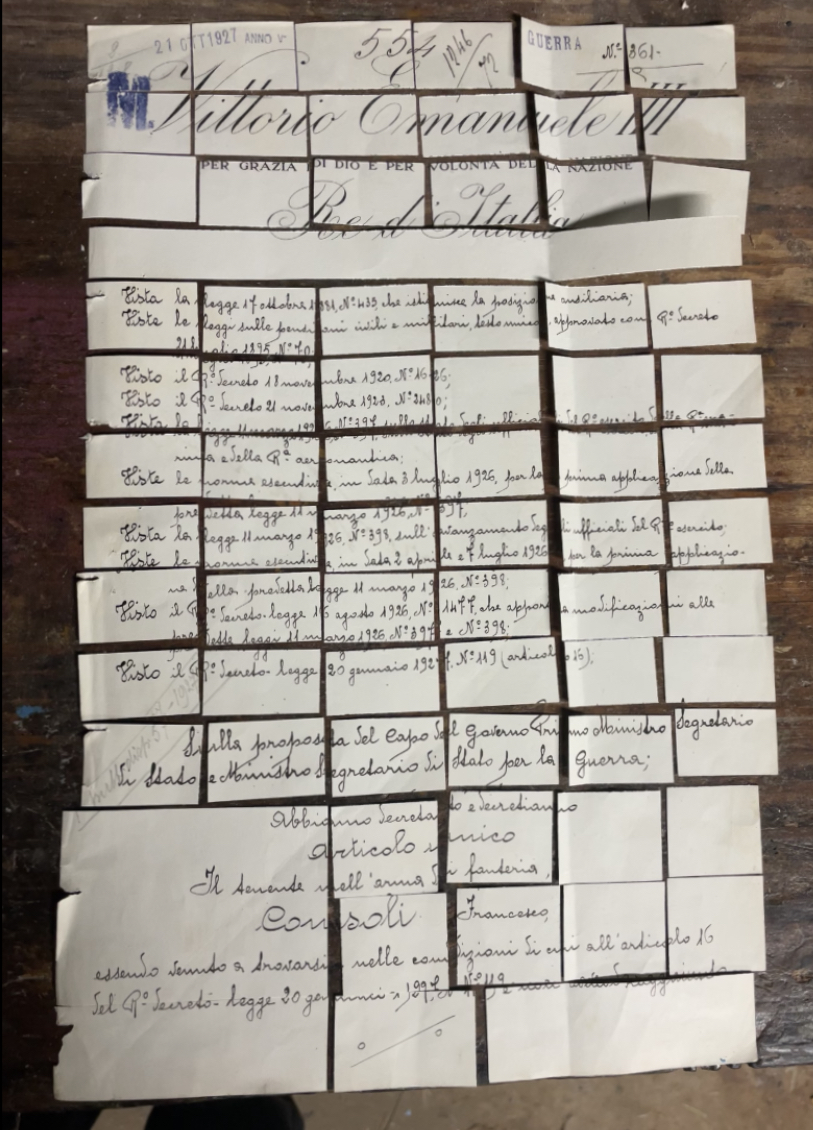 21 OTT 1927 ANNO V° 554 1246/72 GUERRA N.° 361.
M. Vittorio Emanuele III
PER GRAZIA DI DIO E PER VOLONTÀ DELLA NAZIONE
Re d'Italia
Vista la legge 17 ottobre 1881, N° 435, che istituisce la posizione ausiliaria;
Viste le leggi sulle pensioni civili e militari, testo unico, approvato con R° Decreto
21 luglio 1895, N° 70;
Visto il R° Decreto 18 novembre 1920, N° 1626;
Visto il R° Decreto 21 novembre 1923, N° 2480;
Vista la legge 11 marzo 1926, N° 397, sullo stato degli ufficiali del R° esercito, della R° ma-
rina e della R° aeronautica;
Viste le norme esecutive, in data 3 luglio 1926, per la prima applicazione della
predetta legge 11 marzo 1926, N° 397;
Vista la legge 11 marzo 1926, N° 398, sull'avanzamento degli ufficiali del R° esercito;
Viste le norme esecutive, in data 2 aprile e 7 luglio 1926 per la prima applicazio-
ne della predetta legge 11 marzo 1926, N° 398;
Visto il R° Decreto-legge 16 agosto 1926, N° 1477, che apporta modificazioni alle
predette leggi 11 marzo 1926, N° 397 e N° 398;
Visto il R° Decreto-legge 20 gennaio 1927, N° 119 (articolo 15);
Sulla proposta del Capo del Governo Primo Ministro Segretario
di Stato e Ministro Segretario di Stato per la Guerra;
Abbiamo decretato e decretiamo
Articolo unico
Il tenente nell'arma di fanteria,
Consoli Francesco,
essendo venuto a trovarsi nelle condizioni di cui all'articolo 16
del R° Decreto-legge 20 gennaio 1927, N° 119 e non avendo raggiunto